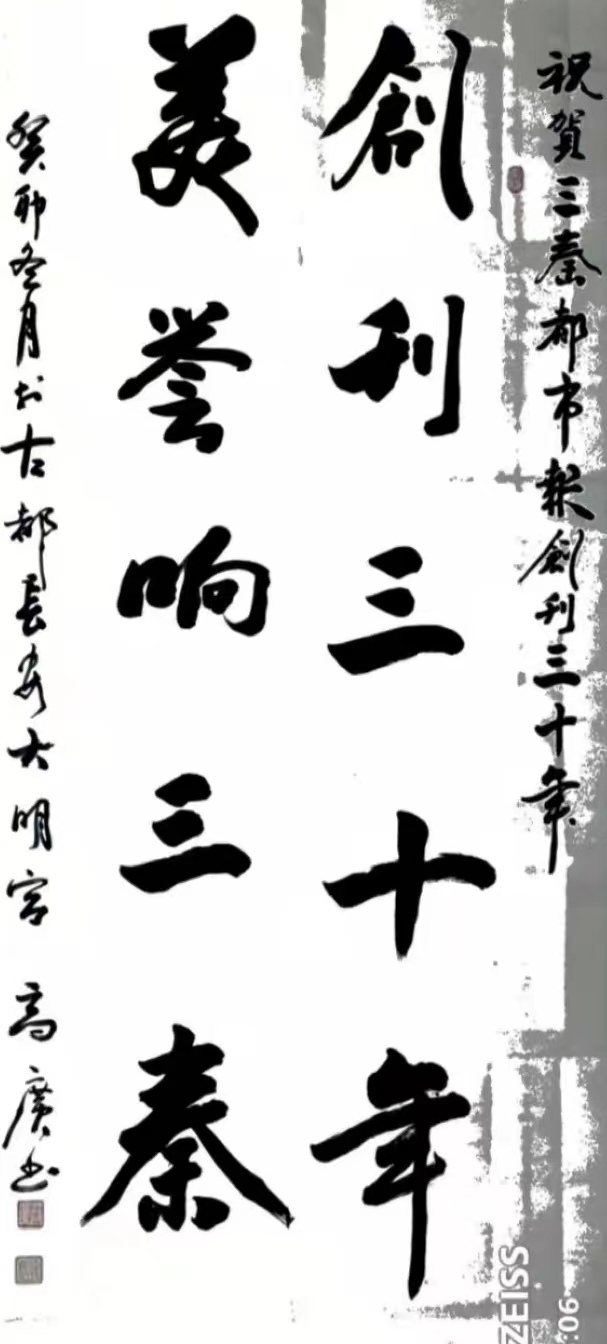 祝賀三秦都市報創刊三十年
創刊三十年
美誉响三秦
癸卯冬月於古都長安大明宫 高廣书
ZEISS
.06